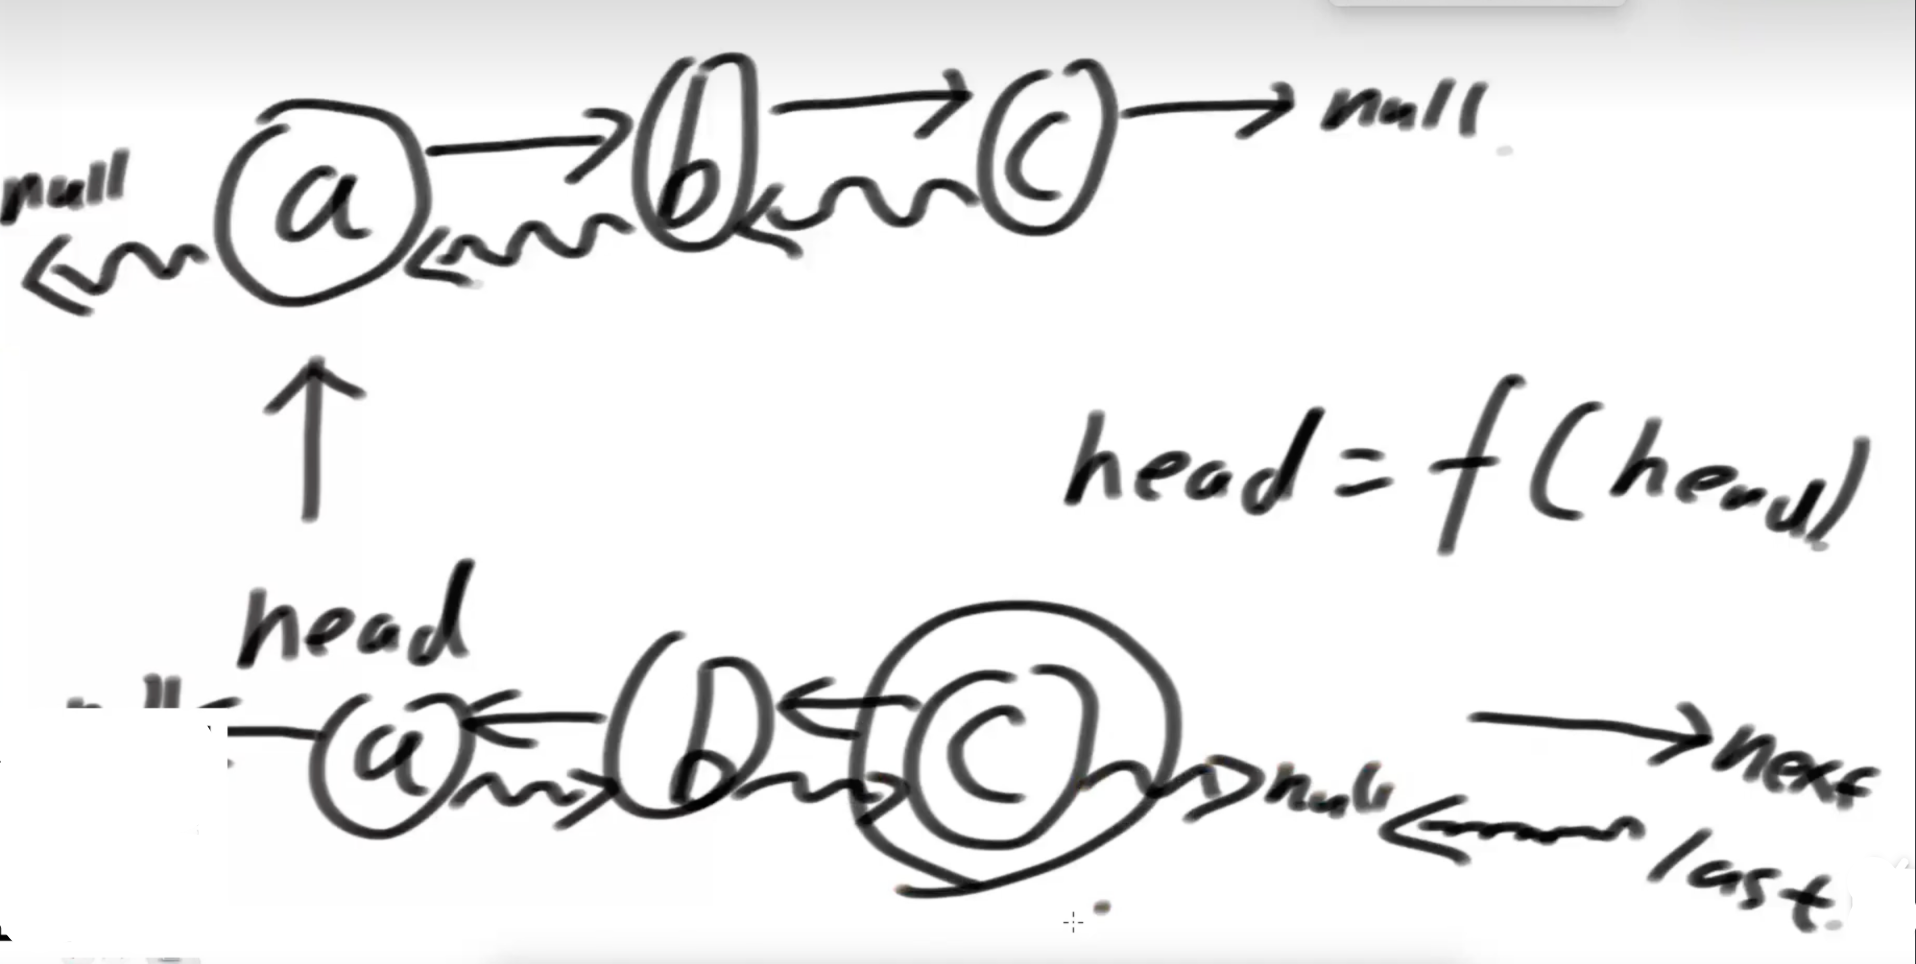 null a b c null
head = f(head)
head
a b c null
next
last